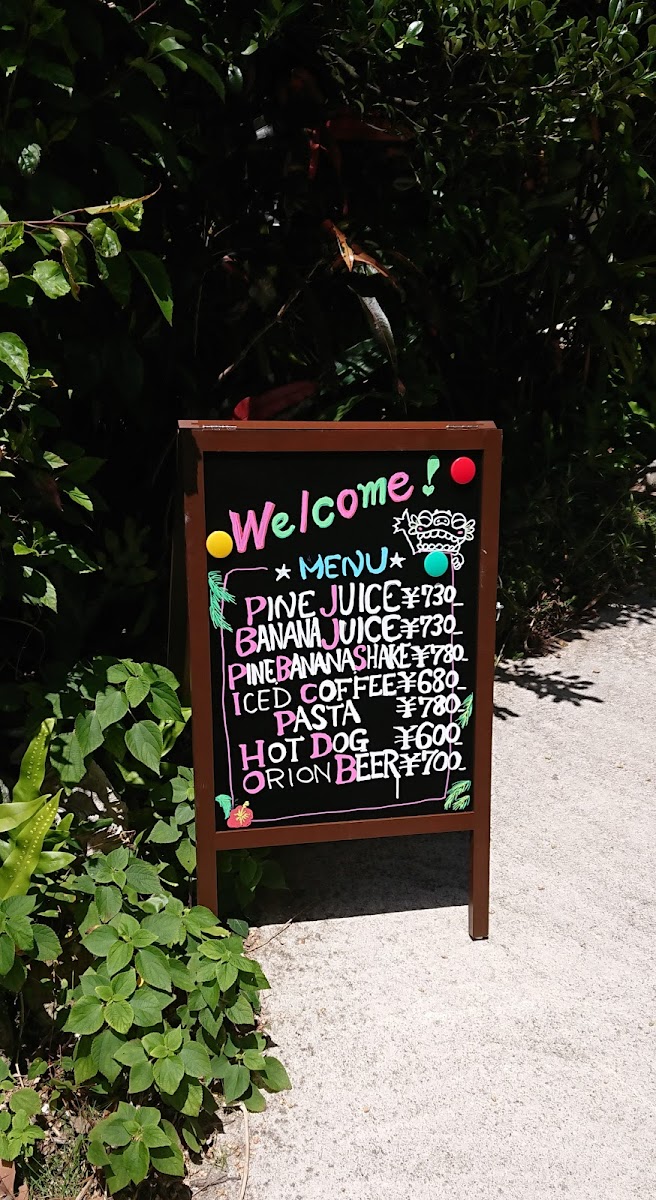 Welcome!
★ MENU ★
PINE JUICE ¥730-
BANANA JUICE ¥730-
PINE,BANANA SHAKE ¥780-
ICED COFFEE ¥680-
PASTA ¥780-
HOT DOG ¥600-
ORION BEER ¥700-